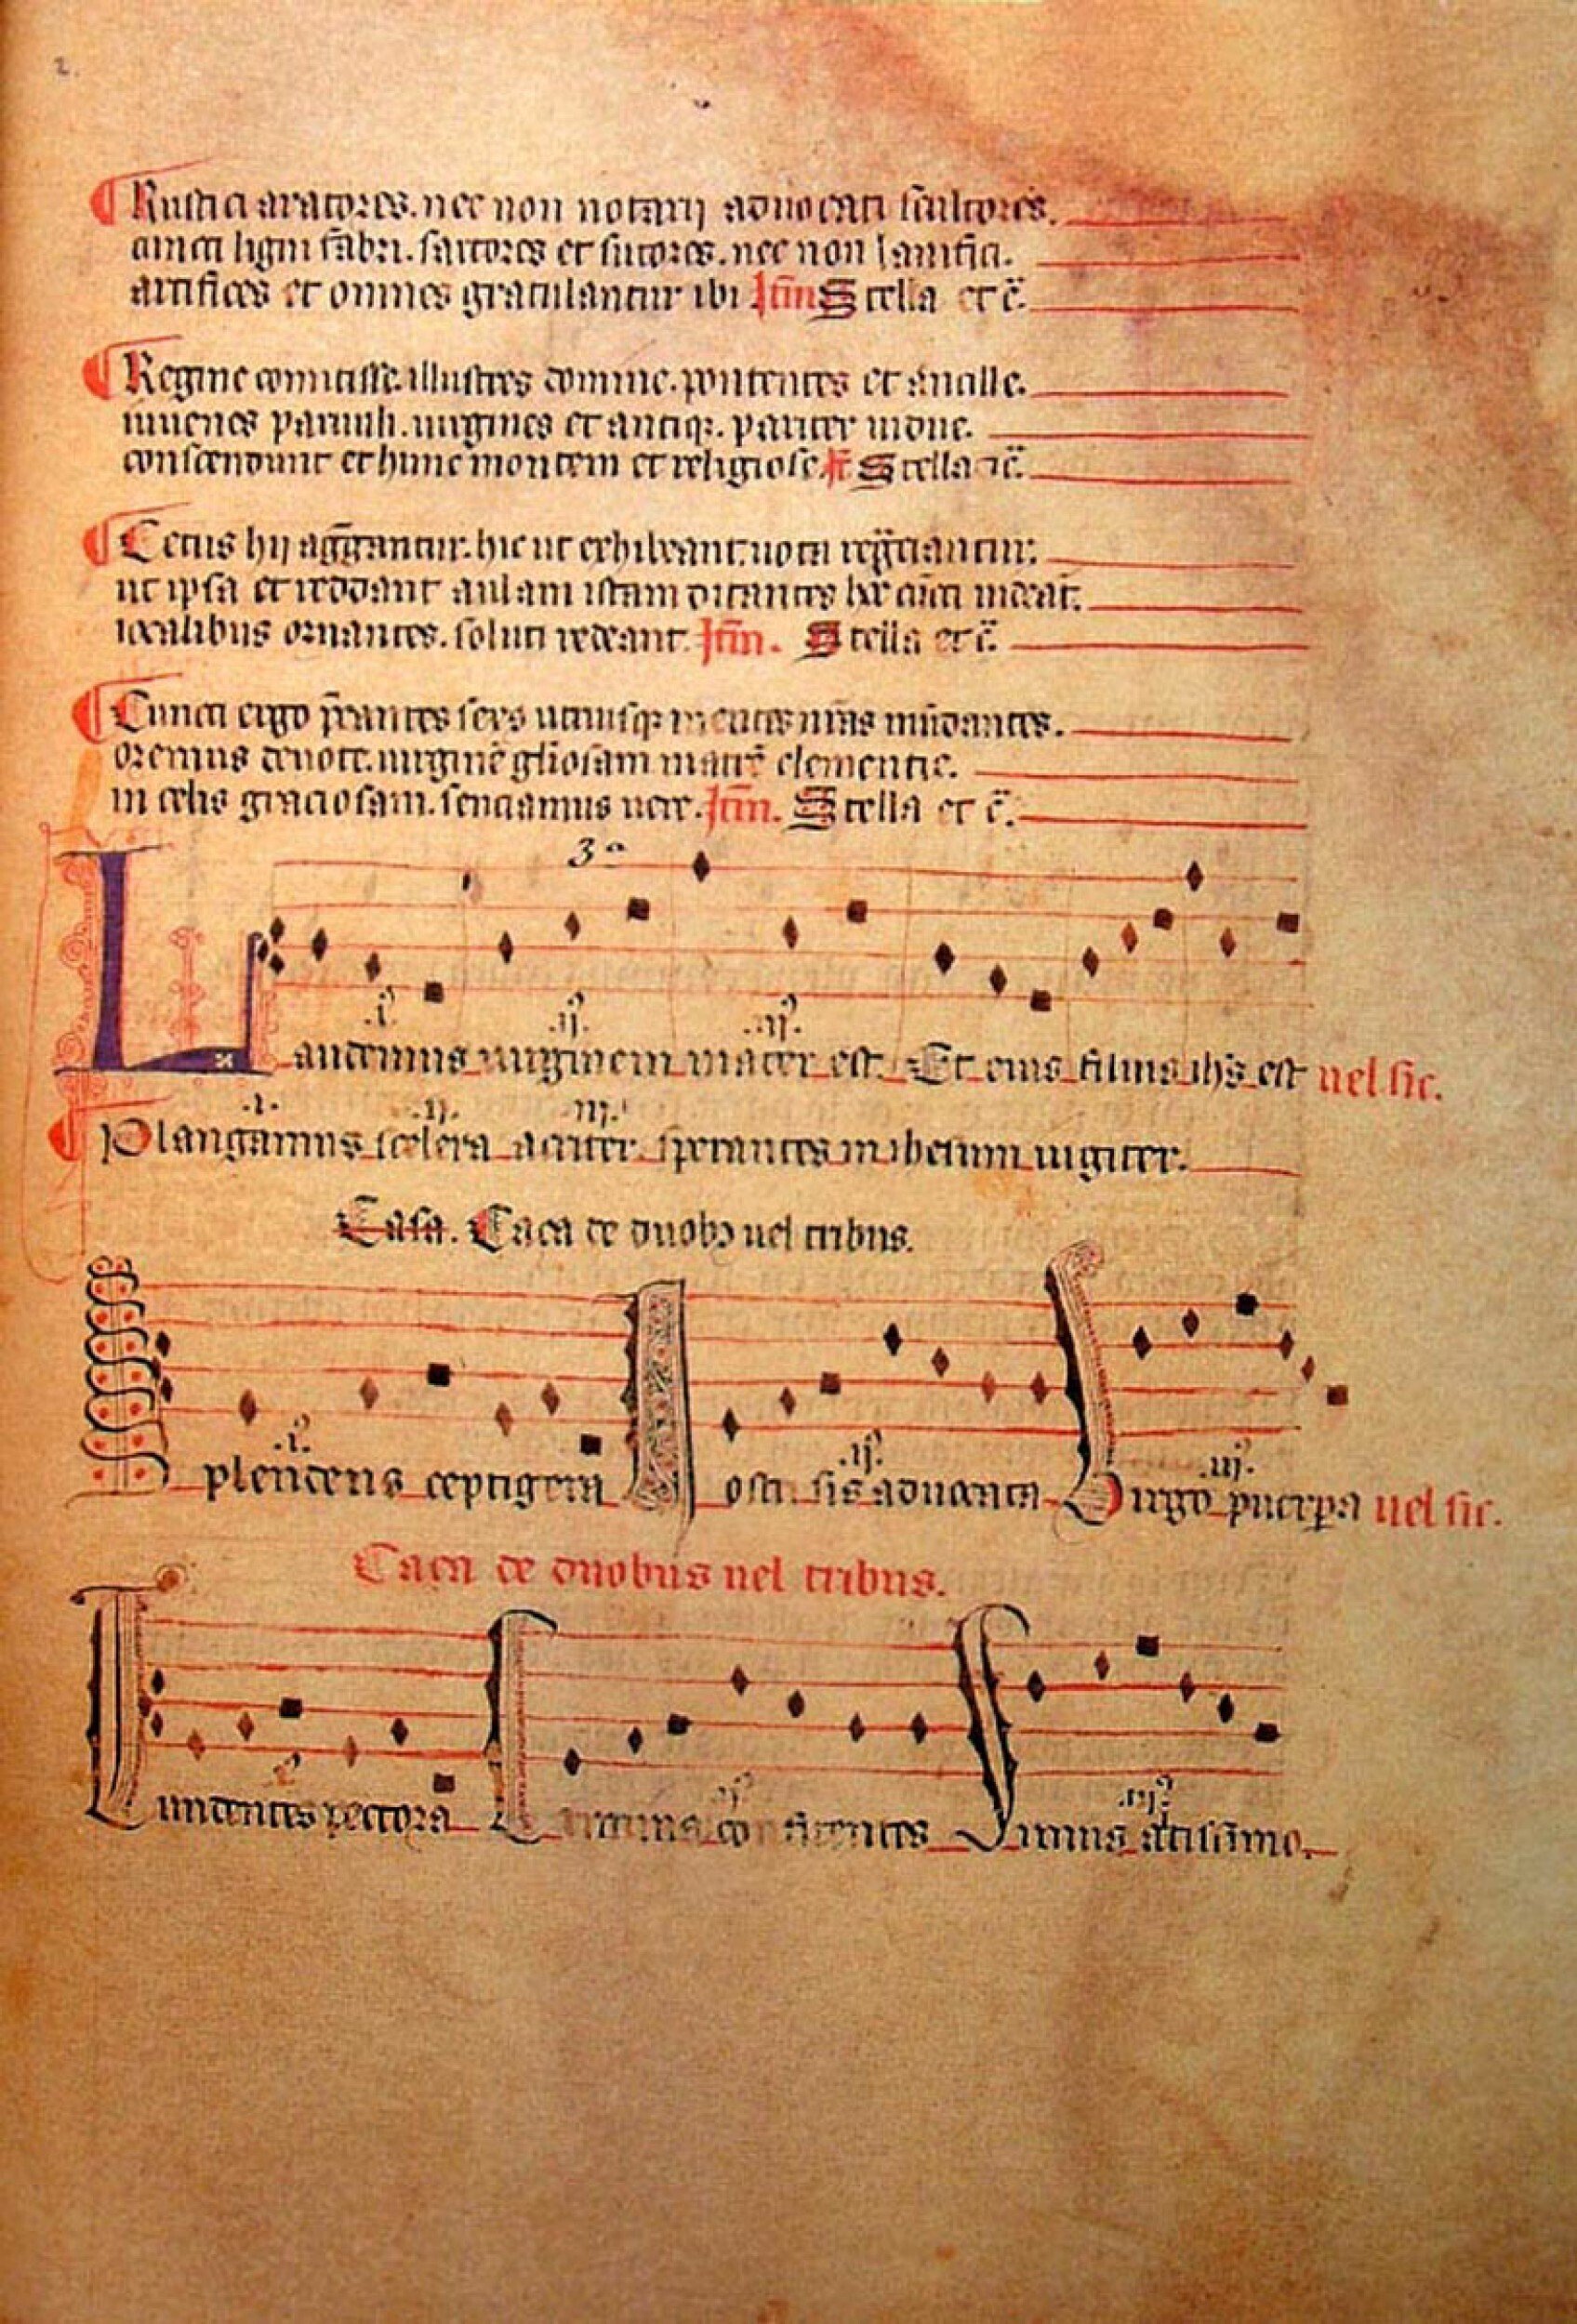 2.
Rustici aratores. nec non notarij aduocati scultores.
cuncti ligni fabri. sartores et sutores. nec non lanifici.
artifices et omnes gratulantur ibi Itm Stella et c̃.
Regine comitisse. illustres domine. potentes et ancille.
iuuenes paruuli. uirgines et antiq;. pariter uidue.
conscendunt et hunc montem et religiose. It̃ Stella ⁊c̃.
Cetus hij aggregantur. hic ut exhibeant. uota regraciantur.
ut ipsa et reddant aulam istam ditantes hec cuncti uideant.
iocalibus ornantes. soluti redeant. Itm̃. Stella et c̃.
Cuncti ergo precantes sexus utriusq; mentes nr̃as mũdantes.
oremus deuote. uirginẽ gl̃iosam matrẽ clementie.
in celis graciosam. senciamus uere. Itm̃. Stella et c̃.
3ᵃ
.i. .ij. .iij.
Laudemus uirginem mater est. Et eius filius ih̃s est uel sic.
.i. .ij. .iij.
Plangamus scelera acriter. sperantes in ihesum iugiter.
Casa. Caça de duobꝫ uel tribus.
.i. .ij. .iij.
Splendens ceptigera Nostri sis aduocata Virgo puerpa uel sic.
Caça de duobus uel tribus.
.i. .ij. .iij.
Tundentes pectora Crimina confitentes Simus altissimo.